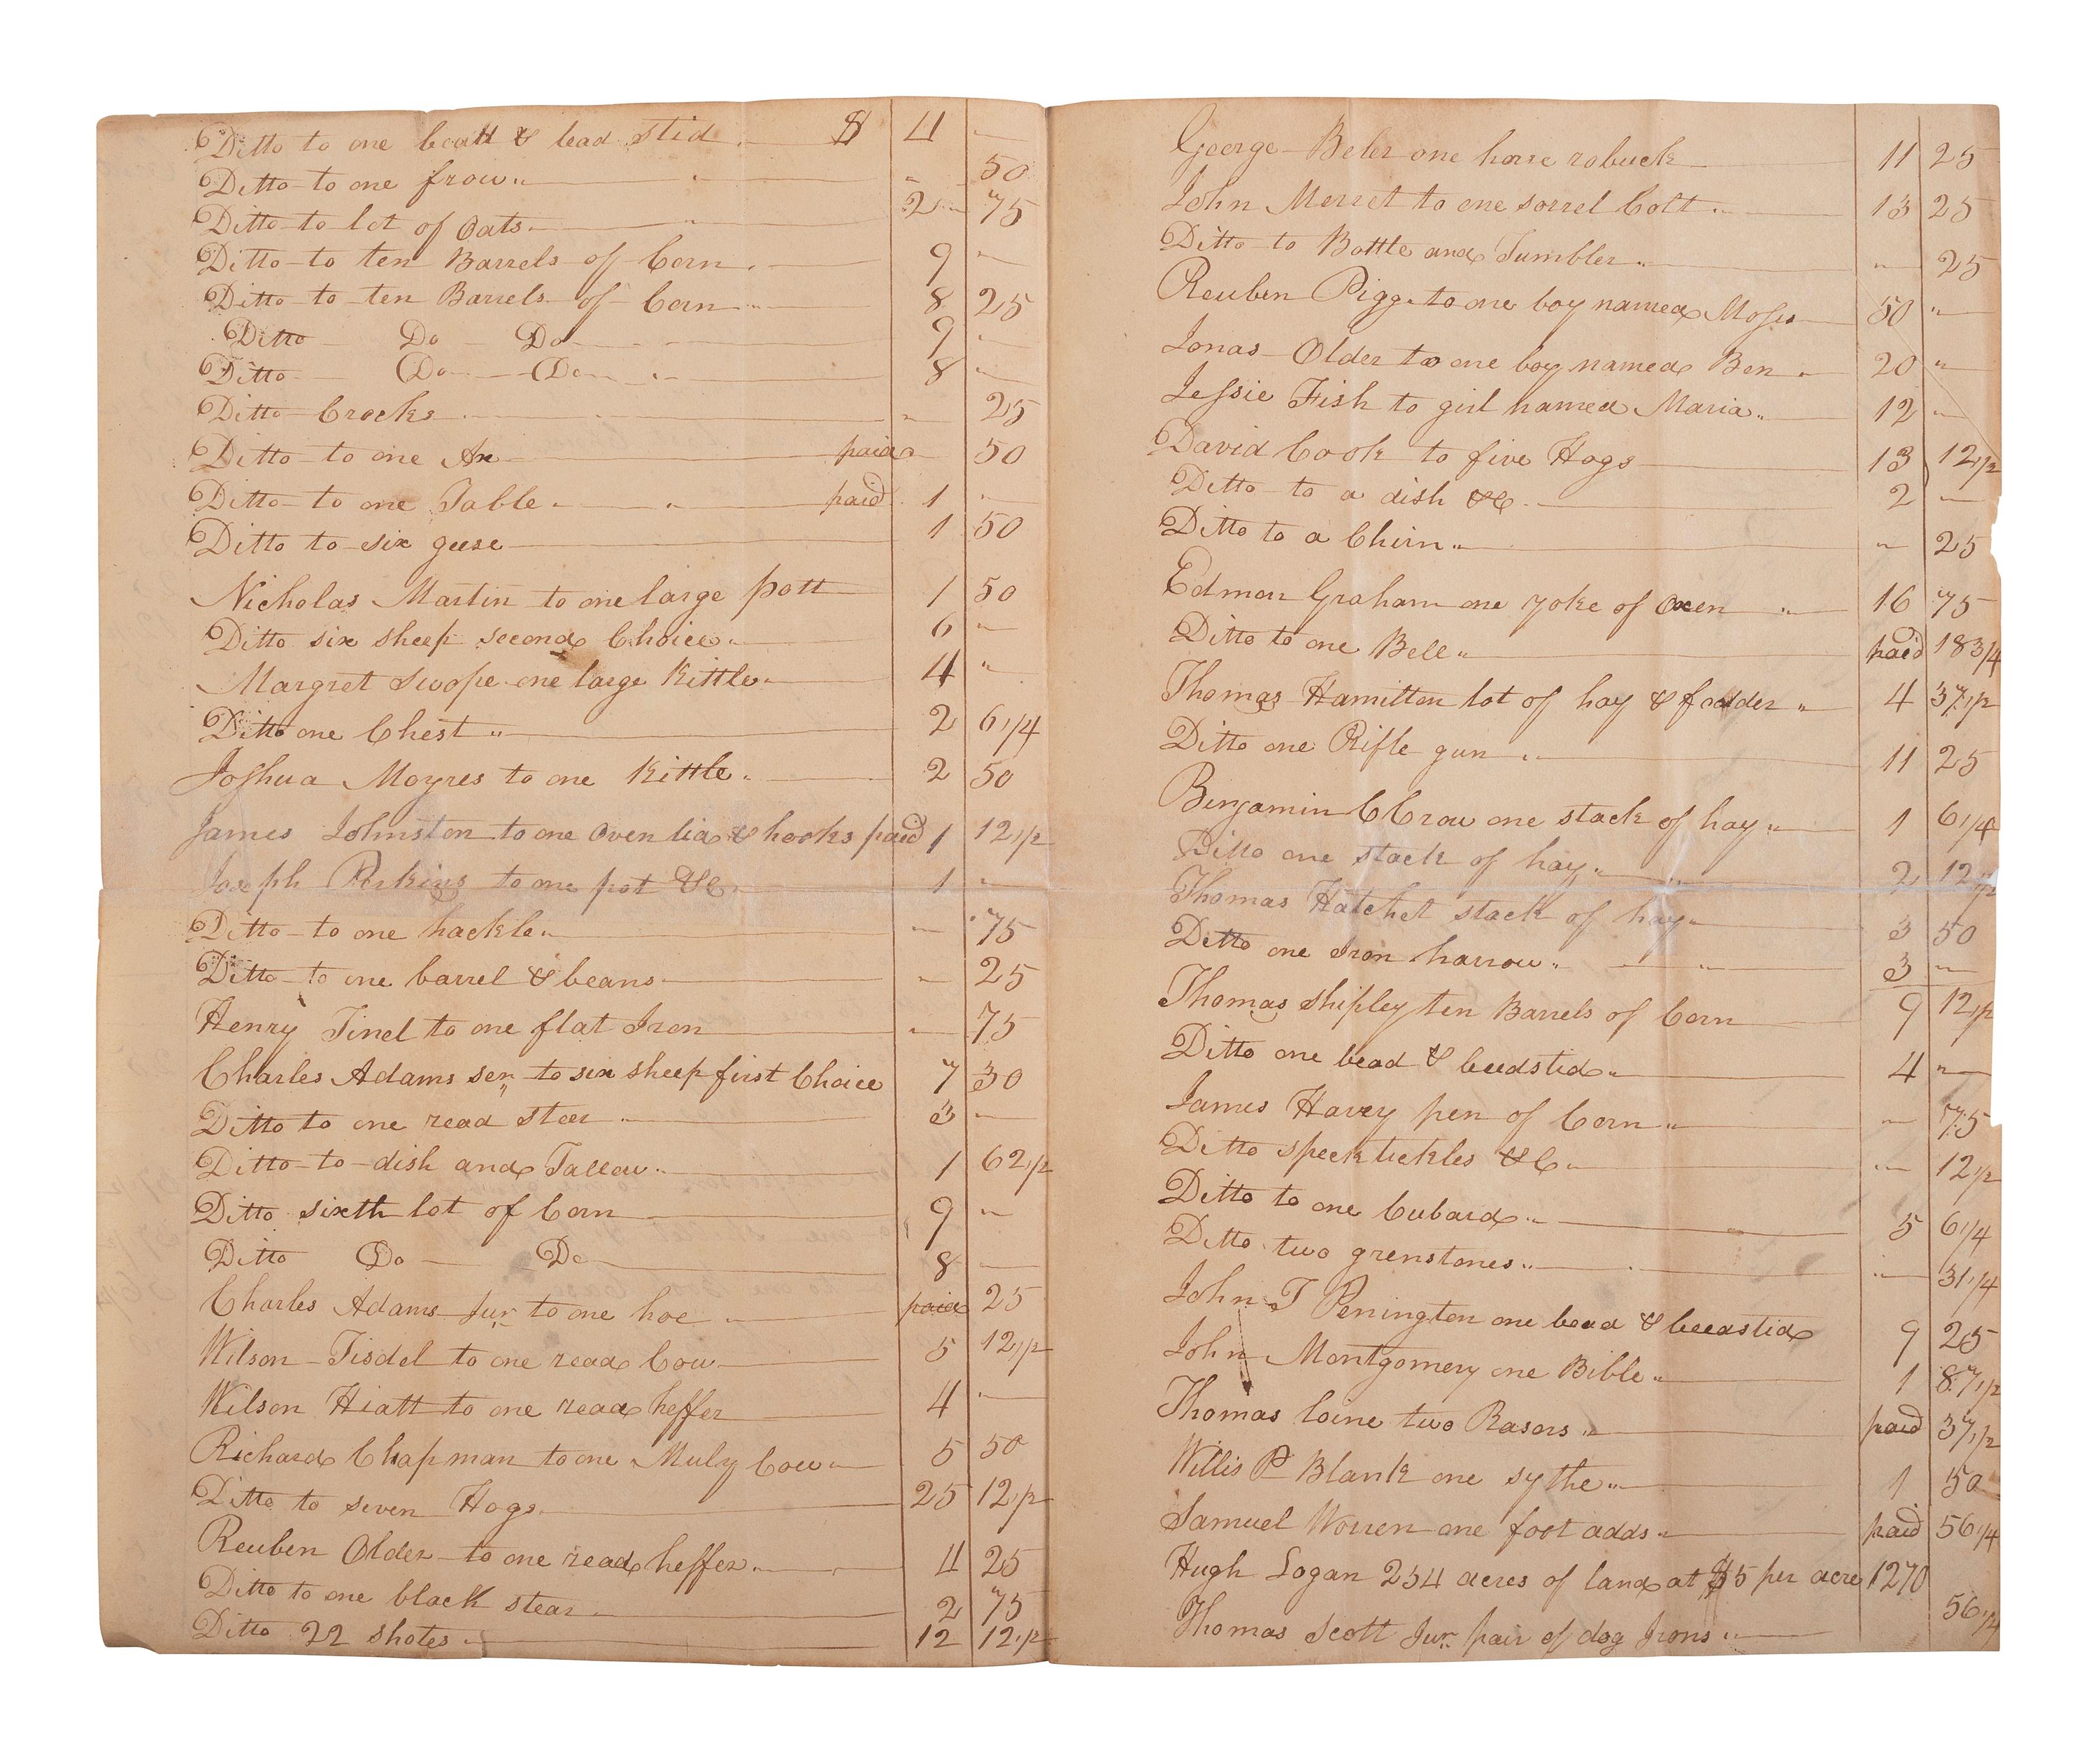 Ditto to one beadd & bead stid $ 4 —
Ditto to one frow 50
Ditto to lot of Oats 2 75
Ditto to ten Barrels of Corn 9 —
Ditto to ten Barrels of Corn 8 25
Ditto Do Do 9 —
Ditto Do Do 8 —
Ditto Crocks 25
Ditto to one Ax paid 50
Ditto to one Table paid 1 —
Ditto to six geese 1 50
Nicholas Martin to one large pott 1 50
Ditto six sheep second Choice 6 —
Margret Swope one large Kittle 4 "
Ditto one Chest 2 6 1/4
Joshua Moyres to one Kittle 2 50
James Johnston to one Oven lid & hooks paid 1 12 1/2
Joseph Perkins to one pot &C 1 —
Ditto to one hackle 75
Ditto to one barrel & beans 25
Henry Tinel to one flat Iron 75
Charles Adams sen to six sheep first Choice 7 30
Ditto to one read steer 3 —
Ditto to dish and Tallow 1 62 1/2
Ditto sixth lot of Corn 9 —
Ditto Do Do 8 —
Charles Adams Jur to one hoe paid 25
Wilson Tisdel to one read Cow 5 12 1/2
Wilson Hiatt to one read heffer 4 —
Richard Chapman to one Muly Cow 5 50
Ditto to seven Hogs 25 12 1/2
Reuben Older to one read heffer 4 25
Ditto to one black stear 2 75
Ditto 22 shotes 12 12 1/2
George Beler one horse robuck 11 25
John Merret to one sorrel Colt 13 25
Ditto to Bottle and Tumbler 25
Reuben Pigg to one boy named Moses 50 "
Jonas Older to one boy named Ben 20 "
Jessie Fish to girl named Maria 12 —
David Cook to five Hogs 13 12 1/2
Ditto to a dish &C 2 —
Ditto to a Churn 25
Edmon Graham one yoke of Oxen 16 75
Ditto to one Bell paid 18 3/4
Thomas Hamilton lot of hay & fodder 4 37 1/2
Ditto one Rifle gun 11 25
Benjamin C Crow one stack of hay 1 6 1/4
Ditto one stack of hay 2 12 1/2
Thomas Hatchet stack of hay 3 50
Ditto one Iron harrow 3 —
Thomas Shipley ten Barrels of Corn 9 12 1/2
Ditto one bead & beedstid 4 "
James Havey pen of Corn 75
Ditto specktickles &C 12 1/2
Ditto to one Cubard 5 6 1/4
Ditto two grenstones 31 1/4
John T Penington one bead & beeastid 9 25
John Montgomery one Bible 1 87 1/2
Thomas Coine two Rasors paid 37 1/2
Willis P Blank one sythe 1 50
Samuel Worren one foot adds paid 56 1/4
Hugh Logan 254 acres of land at $5 per acre 1270
Thomas Scott Jur pair of dog Irons 56 1/4